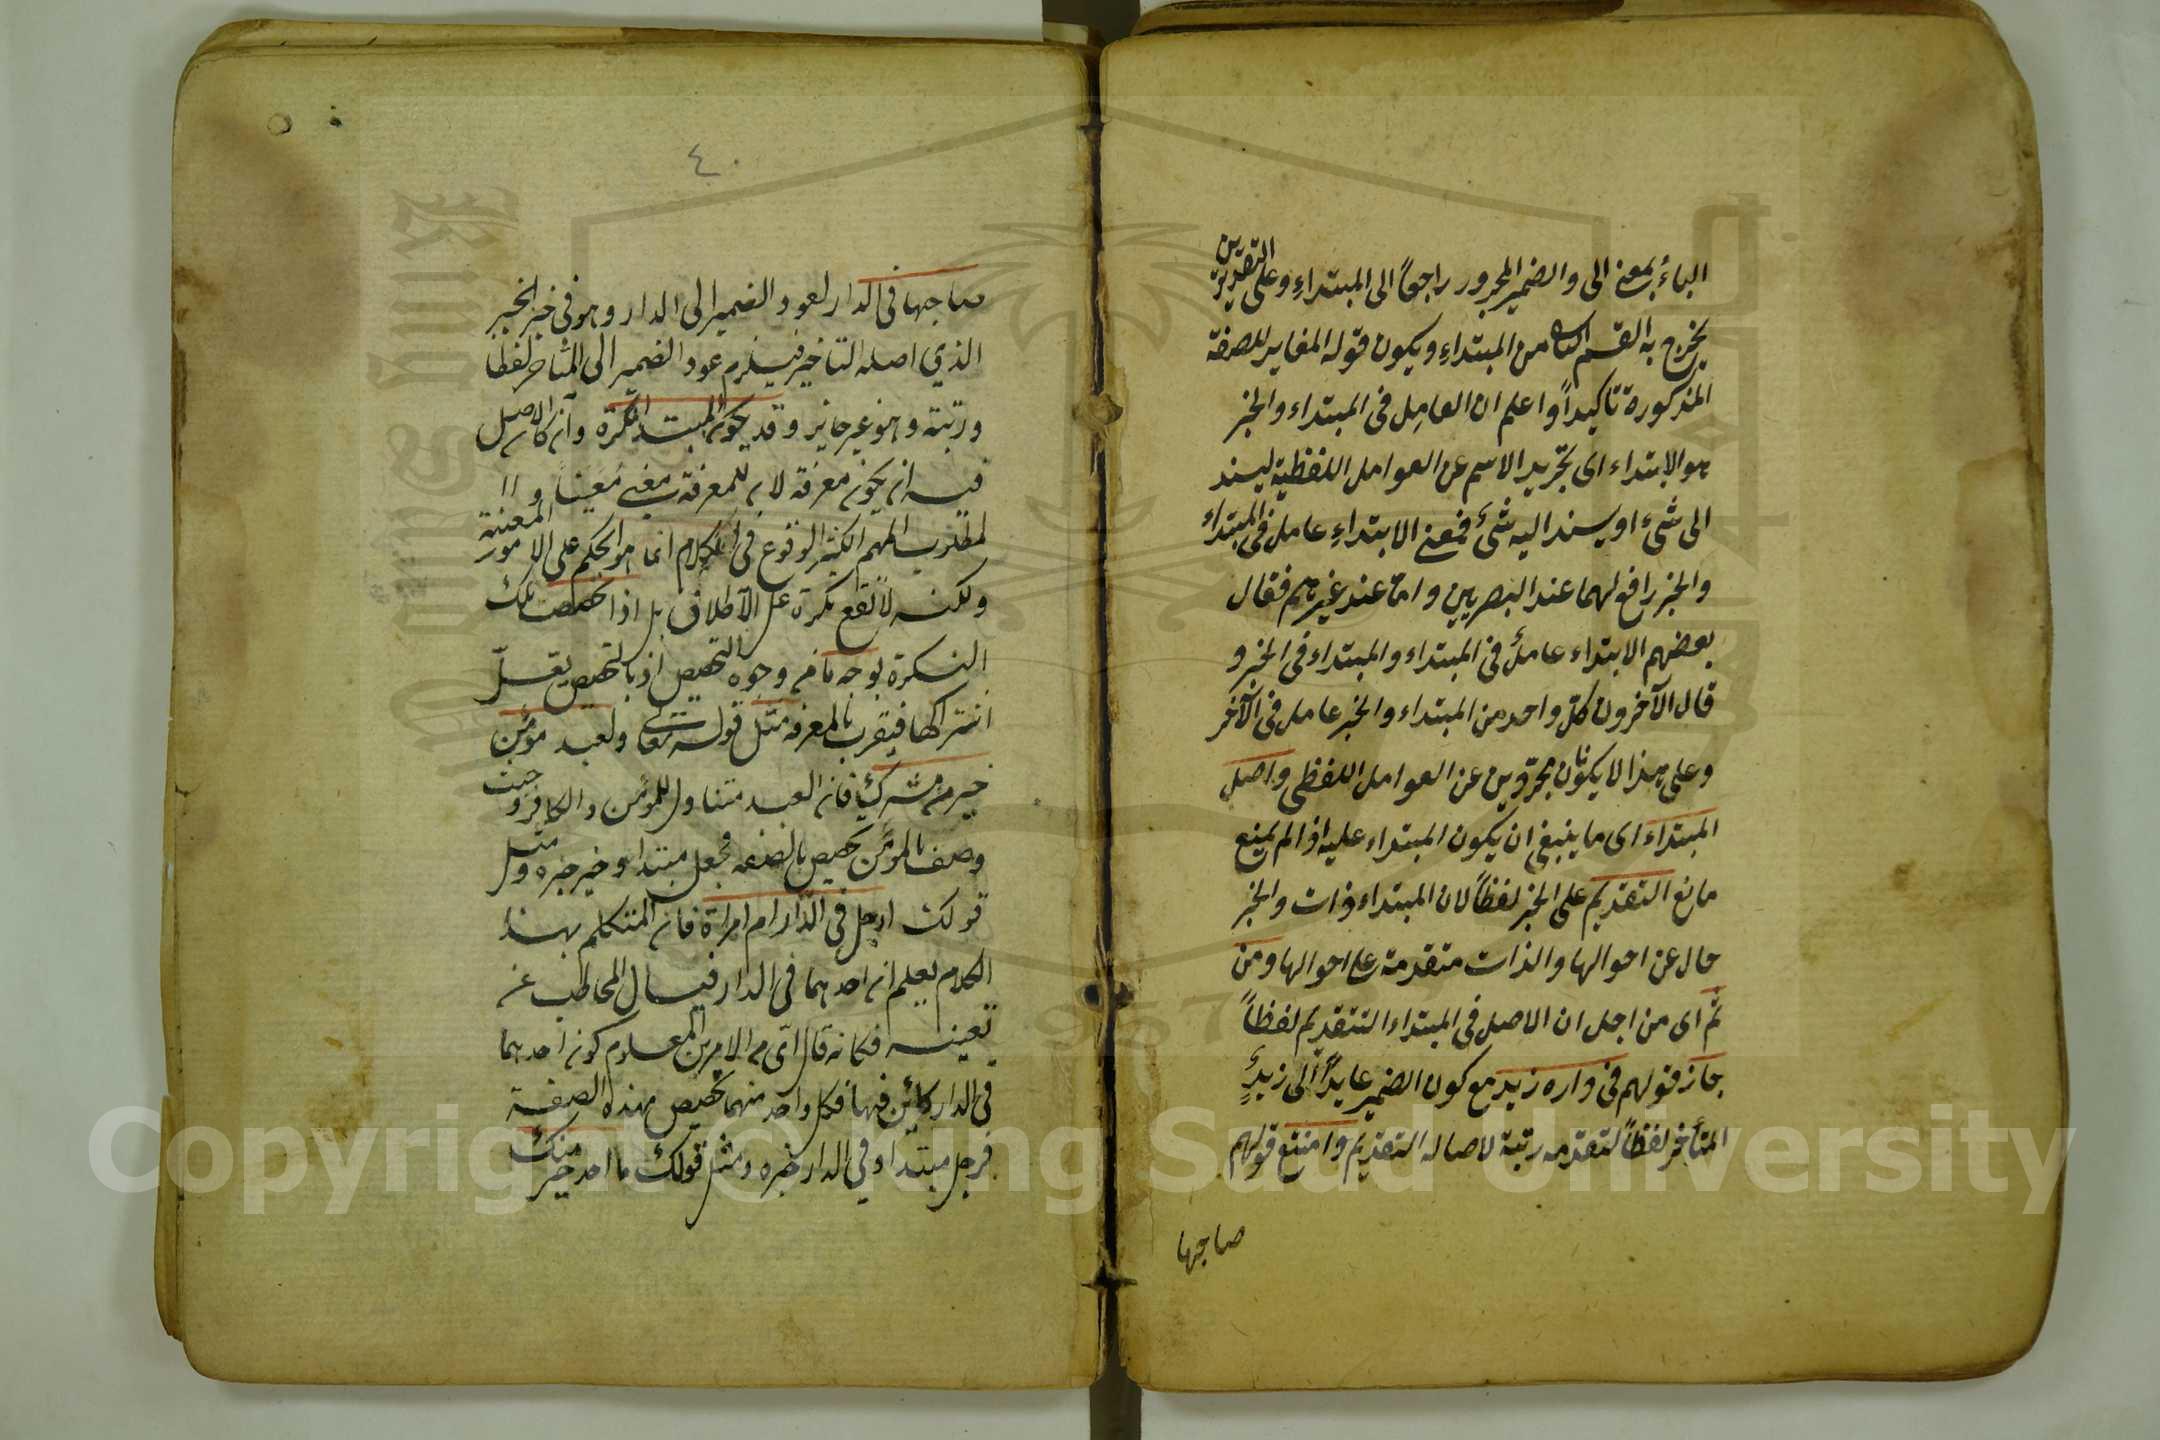 الباء بمعنى الى والضمير المجرور راجعاً الى المبتداءِ وعلى التقديرين
يخرج به القسم الثانى من المبتداءِ ويكون قوله المغاير للصفة
المذكورة تاكيداً واعلم ان العامِل فى المبتداء والخبر
هو الابتداء اى تجريد الاسم عن العوامل اللفظية ليسند
الى شئ او يسند اليه شئ فمعنى الابتداءِ عامل فى المبتداء
والخبر رافع لهما عند البصريين واما عند غيرهم فقال
بعضهم الابتداء عاملٌ فى المبتداء والمبتداء فى الخبر و
قال الآخرون كلّ واحد من المبتداء والخبر عامل فى الآخر
وعلى هذا لا يكونان مجرّدين عن العوامل اللفظى واصل
المبتداء اى ما ينبغى ان يكون المبتداء عليه اذا لم يمنع
مانع التقديم على الخبر لفظاً لان المبتداء ذات والخبر
حال عن احوالها والذات متقدمة على احوالها ومن
ثَم اى من اجل ان الاصل فى المبتداء التقديم لفظاً
جاز قولهم فى داره زيد مع كون الضمير عايداً الى زيدٍ
المتأخر لفظاً لتقدمه رتبة لاصالة التقديم وامتنع قولهم
صاحبها
٤٠
صاحبها فى الدار لعود الضمير الى الدار وهو فى خبر الخبر
الذي اصله التاخير فيلزم عود الضمير الى المتأخر لفظا
ورتبة وهو غير جايز وقد يكون المبتداء نكرة وان كان الاصل
فيه ان يكون معرفة لان للمعرفة معنى مُعَيناً و
المطلوب المهم الكثير الوقوع فى الكلام انما هو الحكم على الامور المعينة
ولكنه لا تقع نكرة على الاطلاق بل اذا تخصصت تلك
النكرة بوجه ما من وجوه التخصيص اذ بالتخصيص يقلّ
اشتراكها فيقرب بالمعرفة مثل قوله تعالى ولعبد مؤمن
خير من مشرك فان العبد متناول للمؤمن والكافر وحيث
وصف بالمؤمن تخصيص بالصفة فجعل مبتدا وخير خبره ومثل
قولك ارجل فى الدار ام امراة فان المتكلم بهذا
الكلام يعلم ان احدهما فى الدار فيسال المخاطب عن
تعيينه فكانه قال اىّ من الامرين المعلوم كون احدهما
فى الدار كائن فيها فكل واحد منهما تخصيص بهذه الصفة
فرجل مبتدا وفي الدار خبره ومثل قولك ما احد خير منك
Copyright © King Saud University
King Saud University
1957